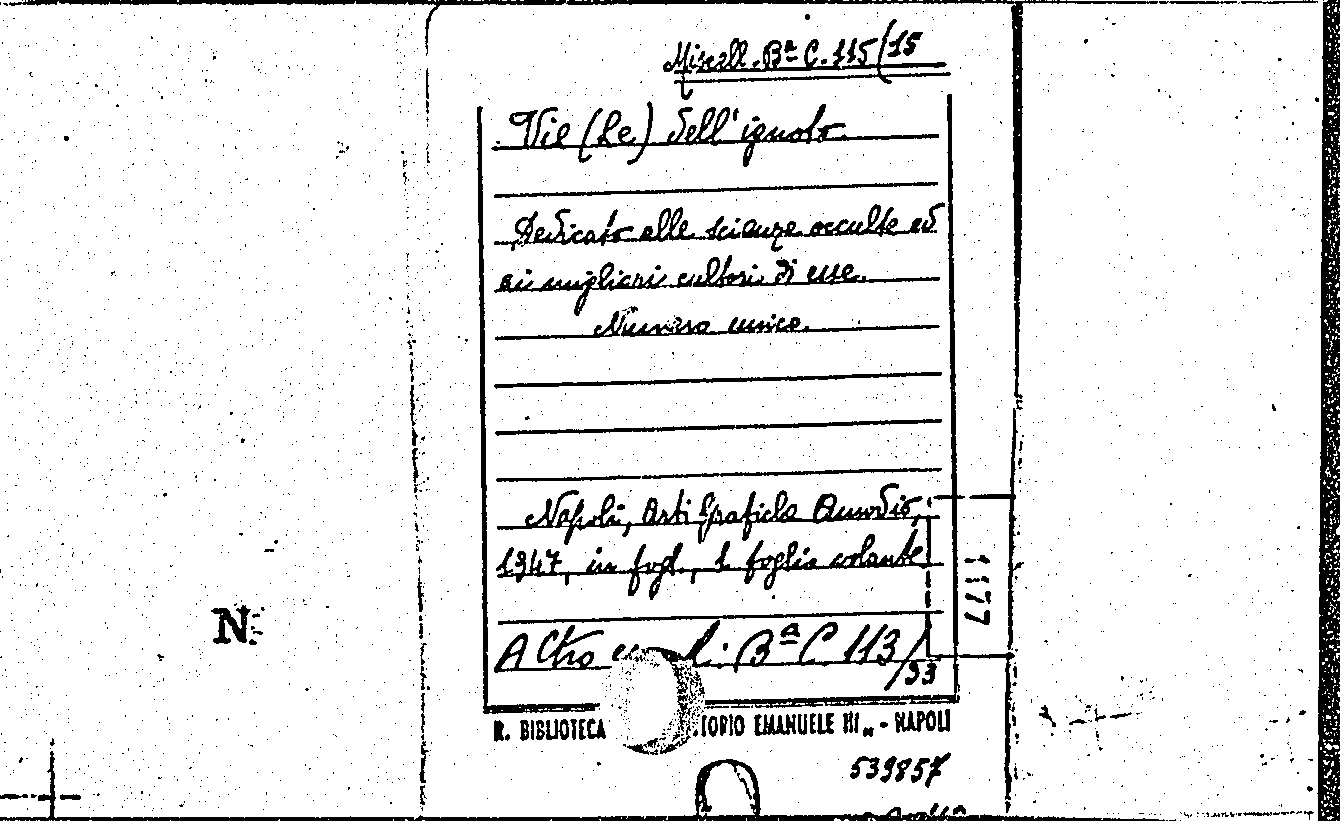 Miscell. Bª C. 115/15
Vie (Le) dell'ignoto
Dedicato alle scienze occulte ed
ai migliori cultori di esse.
Numero unico.
Napoli, Arti Grafiche Amodio,
1947, in fogl., 1 foglio volante
1177
Altro Bª C 113/
93
N
R. BIBLIOTECA EMANUELE III„ - NAPOLI
539857